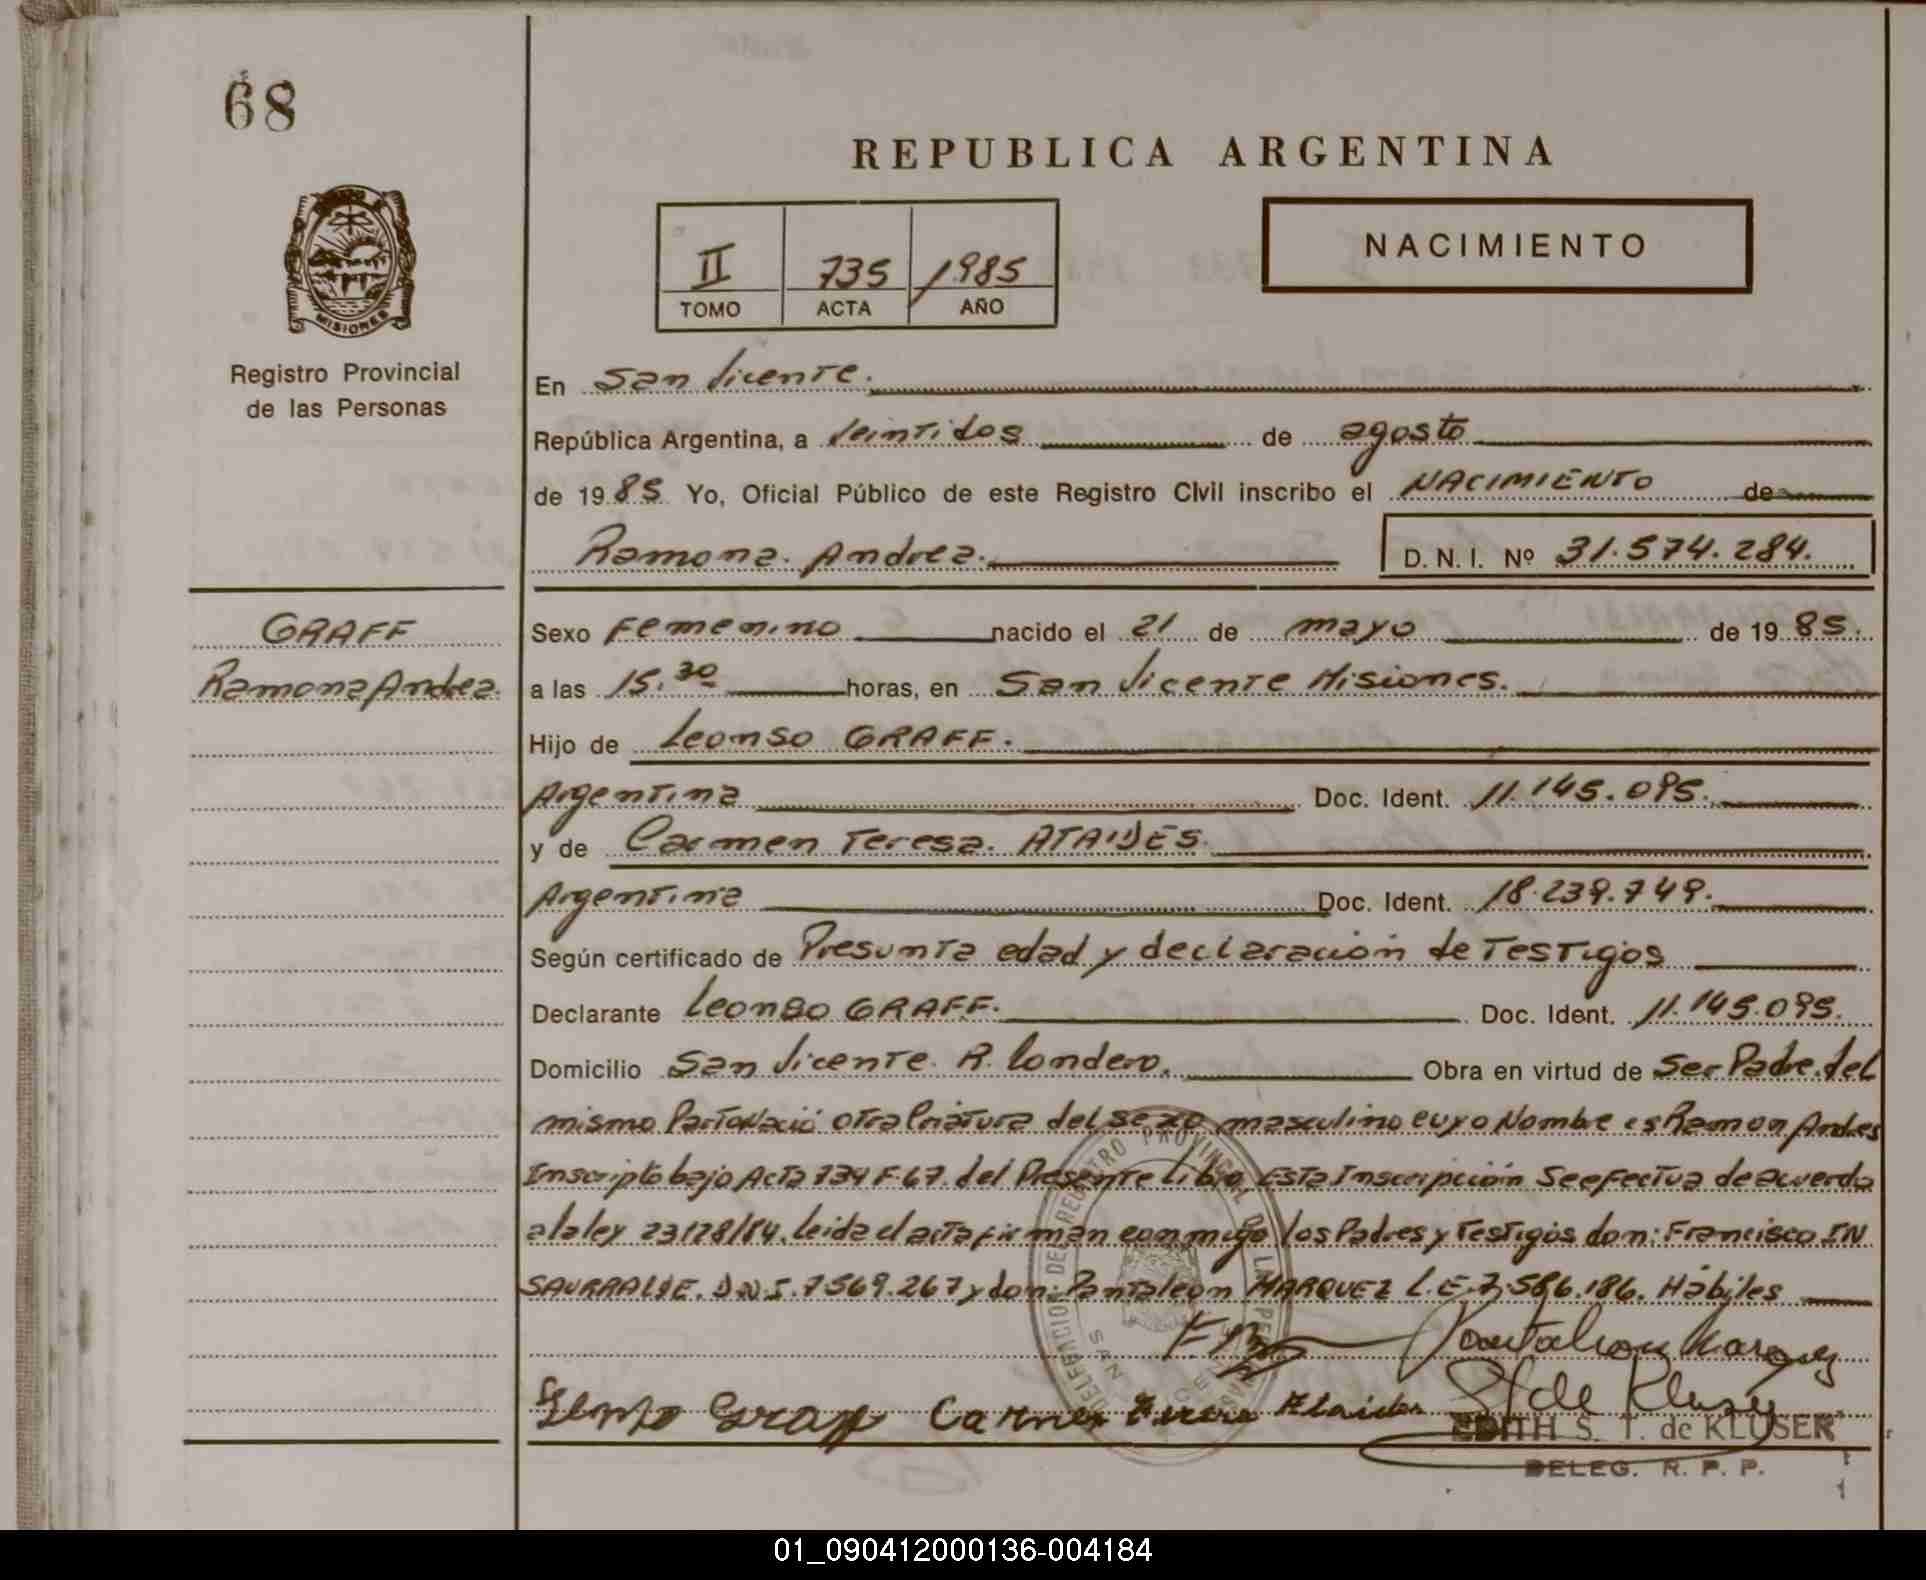 68
REPUBLICA ARGENTINA
NACIMIENTO
II 735 1985
TOMO ACTA AÑO
MISIONES
Registro Provincial
de las Personas
En San Vicente.
República Argentina, a Veintidos de agosto
de 1985 Yo, Oficial Público de este Registro Civil inscribo el NACIMIENTO de
Ramona. Andrea. D. N. I. Nº 31.574.284.
GRAFF
Ramona Andrea.
Sexo Femenino nacido el 21 de mayo de 1985.
a las 15.30 horas, en San Vicente Misiones.
Hijo de Leonso GRAFF.
Argentina Doc. Ident. 11.145.095.
y de Carmen Teresa. ATAIDES.
Argentina Doc. Ident. 18.239.749.
Según certificado de Presunta edad y declaración de Testigos
Declarante Leonso GRAFF. Doc. Ident. 11.145.095.
Domicilio San Vicente. R. Londero. Obra en virtud de Ser Padre. del
mismo Parto Nació otra Criatura del sexo masculino cuyo Nombre es Ramon Andres
Inscripto bajo Acta 734 F. 67. del Presente Libro. Esta Inscripción Se efectua de acuerdo
a la ley 23128/84. leida el acta firman conmigo los Padres y Testigos don: Francisco IN
SAURRALDE. D.N.I. 7569.267 y don: Pantaleón MARQUEZ L.E. 7.586.186. Hábiles
Pantaleon Marquez
Graff Carmen Teresa Ataides
EDITH S. T. de KLUSER
DELEG. R. P. P.
01_090412000136-004184